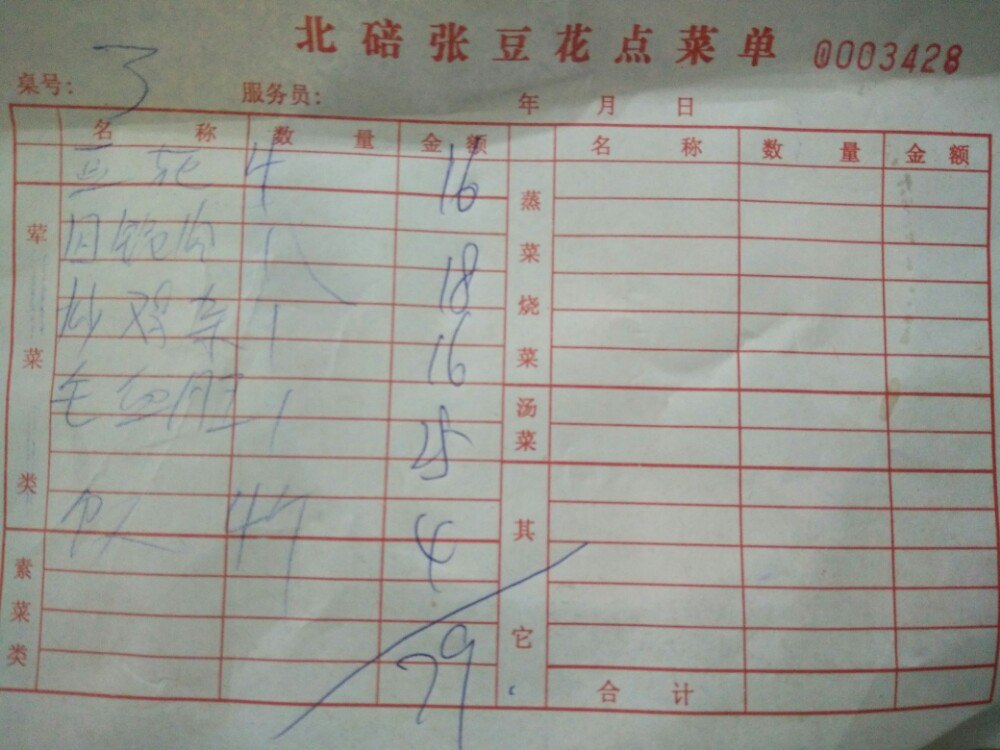 北碚张豆花点菜单 0003428
桌号: 3 服务员: 年 月 日
名 称 数 量 金 额 名 称 数 量 金 额
豆花 4 16
1 18
炒鸡杂 1 16
毛血旺 1 25
饭 4个 4
79
荤菜类
素菜类
蒸菜烧菜
汤菜
其它
合 计